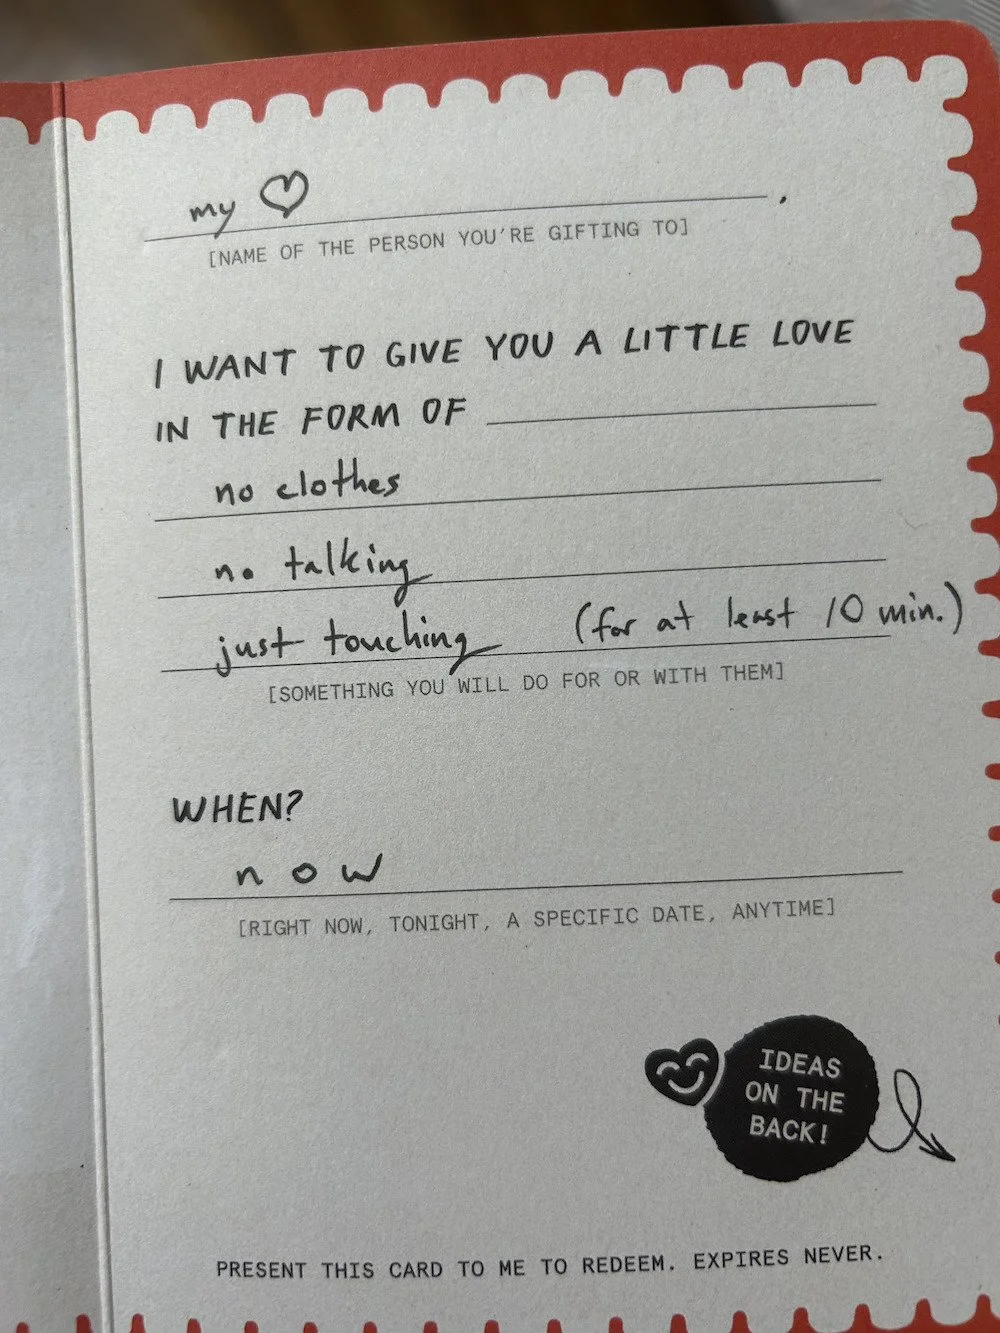 my ♡ .
[NAME OF THE PERSON YOU'RE GIFTING TO]
I WANT TO GIVE YOU A LITTLE LOVE
IN THE FORM OF
no clothes
no talking
just touching (for at least 10 min.)
[SOMETHING YOU WILL DO FOR OR WITH THEM]
WHEN?
now
[RIGHT NOW, TONIGHT, A SPECIFIC DATE, ANYTIME]
IDEAS
ON THE
BACK!
PRESENT THIS CARD TO ME TO REDEEM. EXPIRES NEVER.